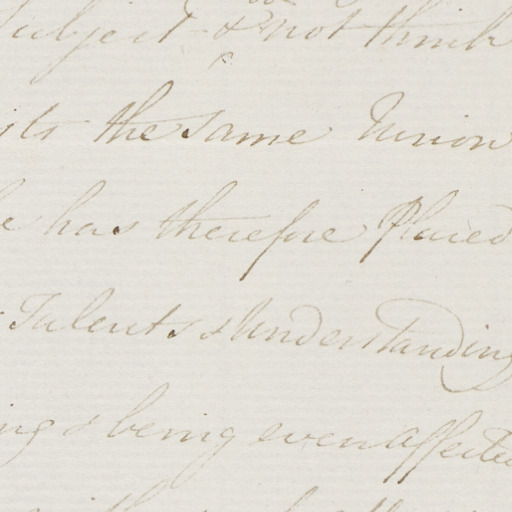 Subject & not think
its the same Union
he has therefore Placed
Talents & Understanding
ing & being even affected